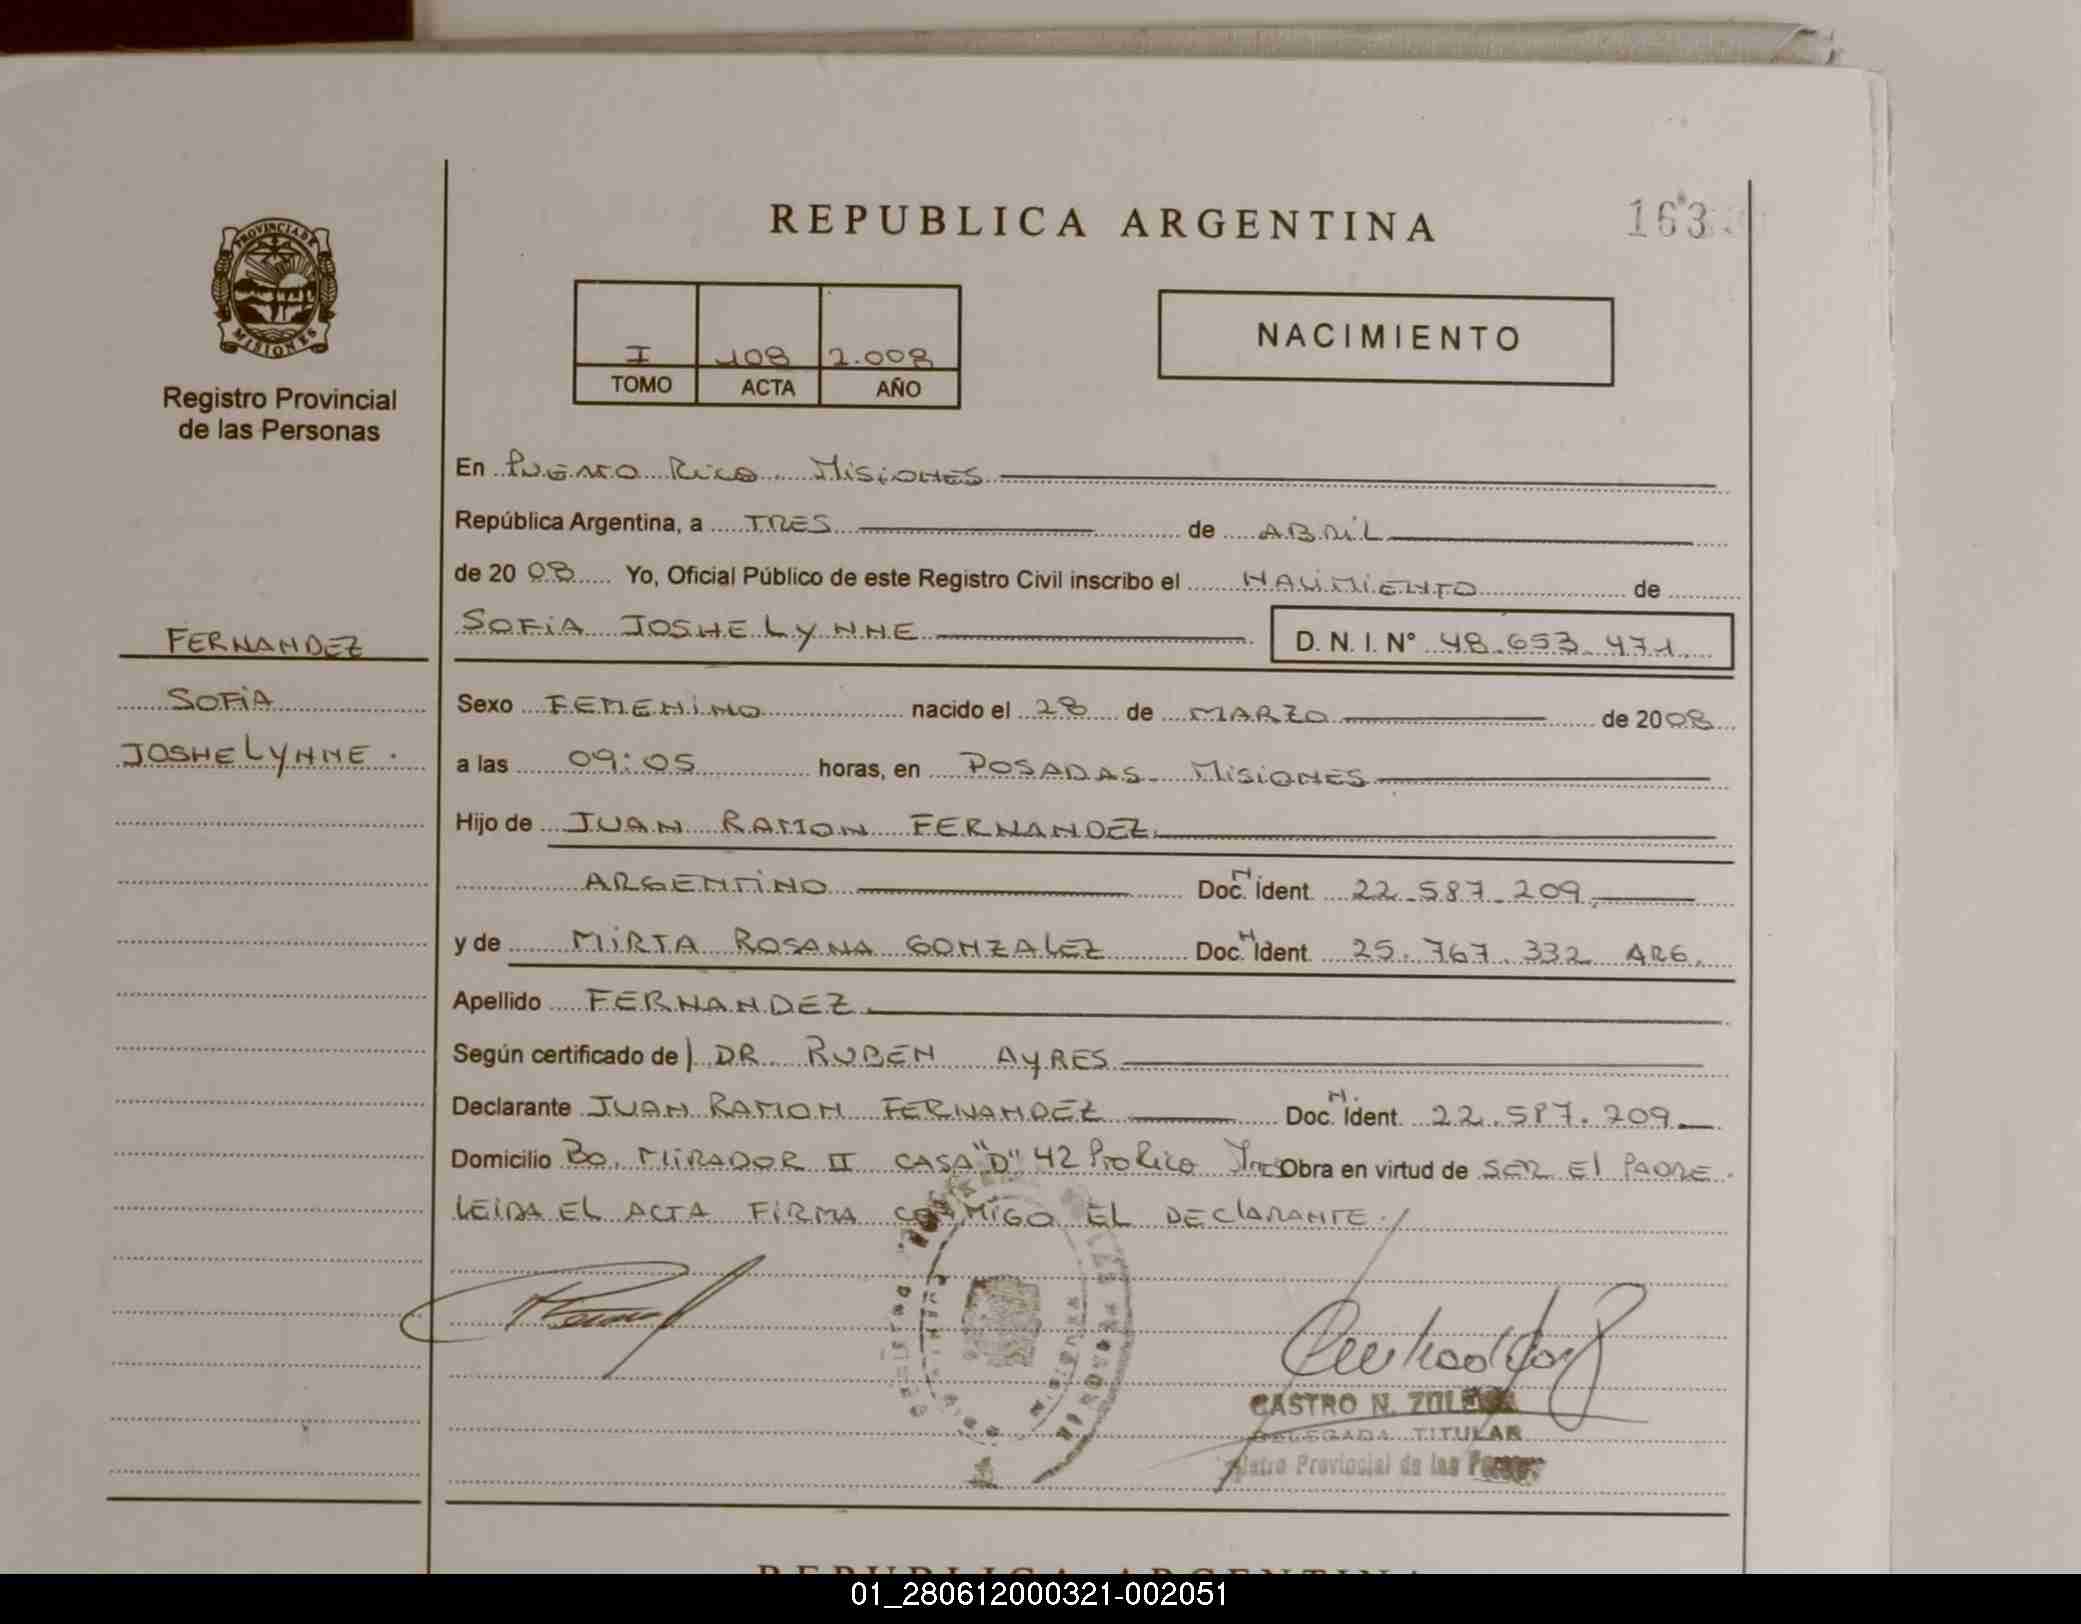 REPUBLICA ARGENTINA
163
PROVINCIA DE
MISIONES
Registro Provincial
de las Personas
I 108 2.008
TOMO ACTA AÑO
NACIMIENTO
En Puerto Rico Misiones
República Argentina, a TRES de ABRIL
de 20 08 Yo, Oficial Público de este Registro Civil inscribo el NACIMIENTO de
SOFIA JOSHELYNNE D. N. I. N° 48.653.471
FERNANDEZ
SOFIA
JOSHELYNNE.
Sexo FEMENINO nacido el 28 de MARZO de 2008
a las 09:05 horas, en POSADAS MISIONES
Hijo de JUAN RAMON FERNANDEZ
ARGENTINO Doc. N. Ident. 22.587.209
y de MIRTA ROSANA GONZALEZ Doc. N Ident. 25.767.332 ARG.
Apellido FERNANDEZ
Según certificado de DR RUBEN AYRES
Declarante JUAN RAMON FERNANDEZ Doc. N. Ident. 22.587.209
Domicilio Bo. MIRADOR II CASA "D" 42 Pto Rico Obra en virtud de SER El PADRE.
LEIDA EL ACTA FIRMA CONMIGO EL DECLARANTE.
CASTRO N. ZULEMA
DELEGADA TITULAR
Provincial de las
REPUBLICA ARGENTINA
01_280612000321-002051